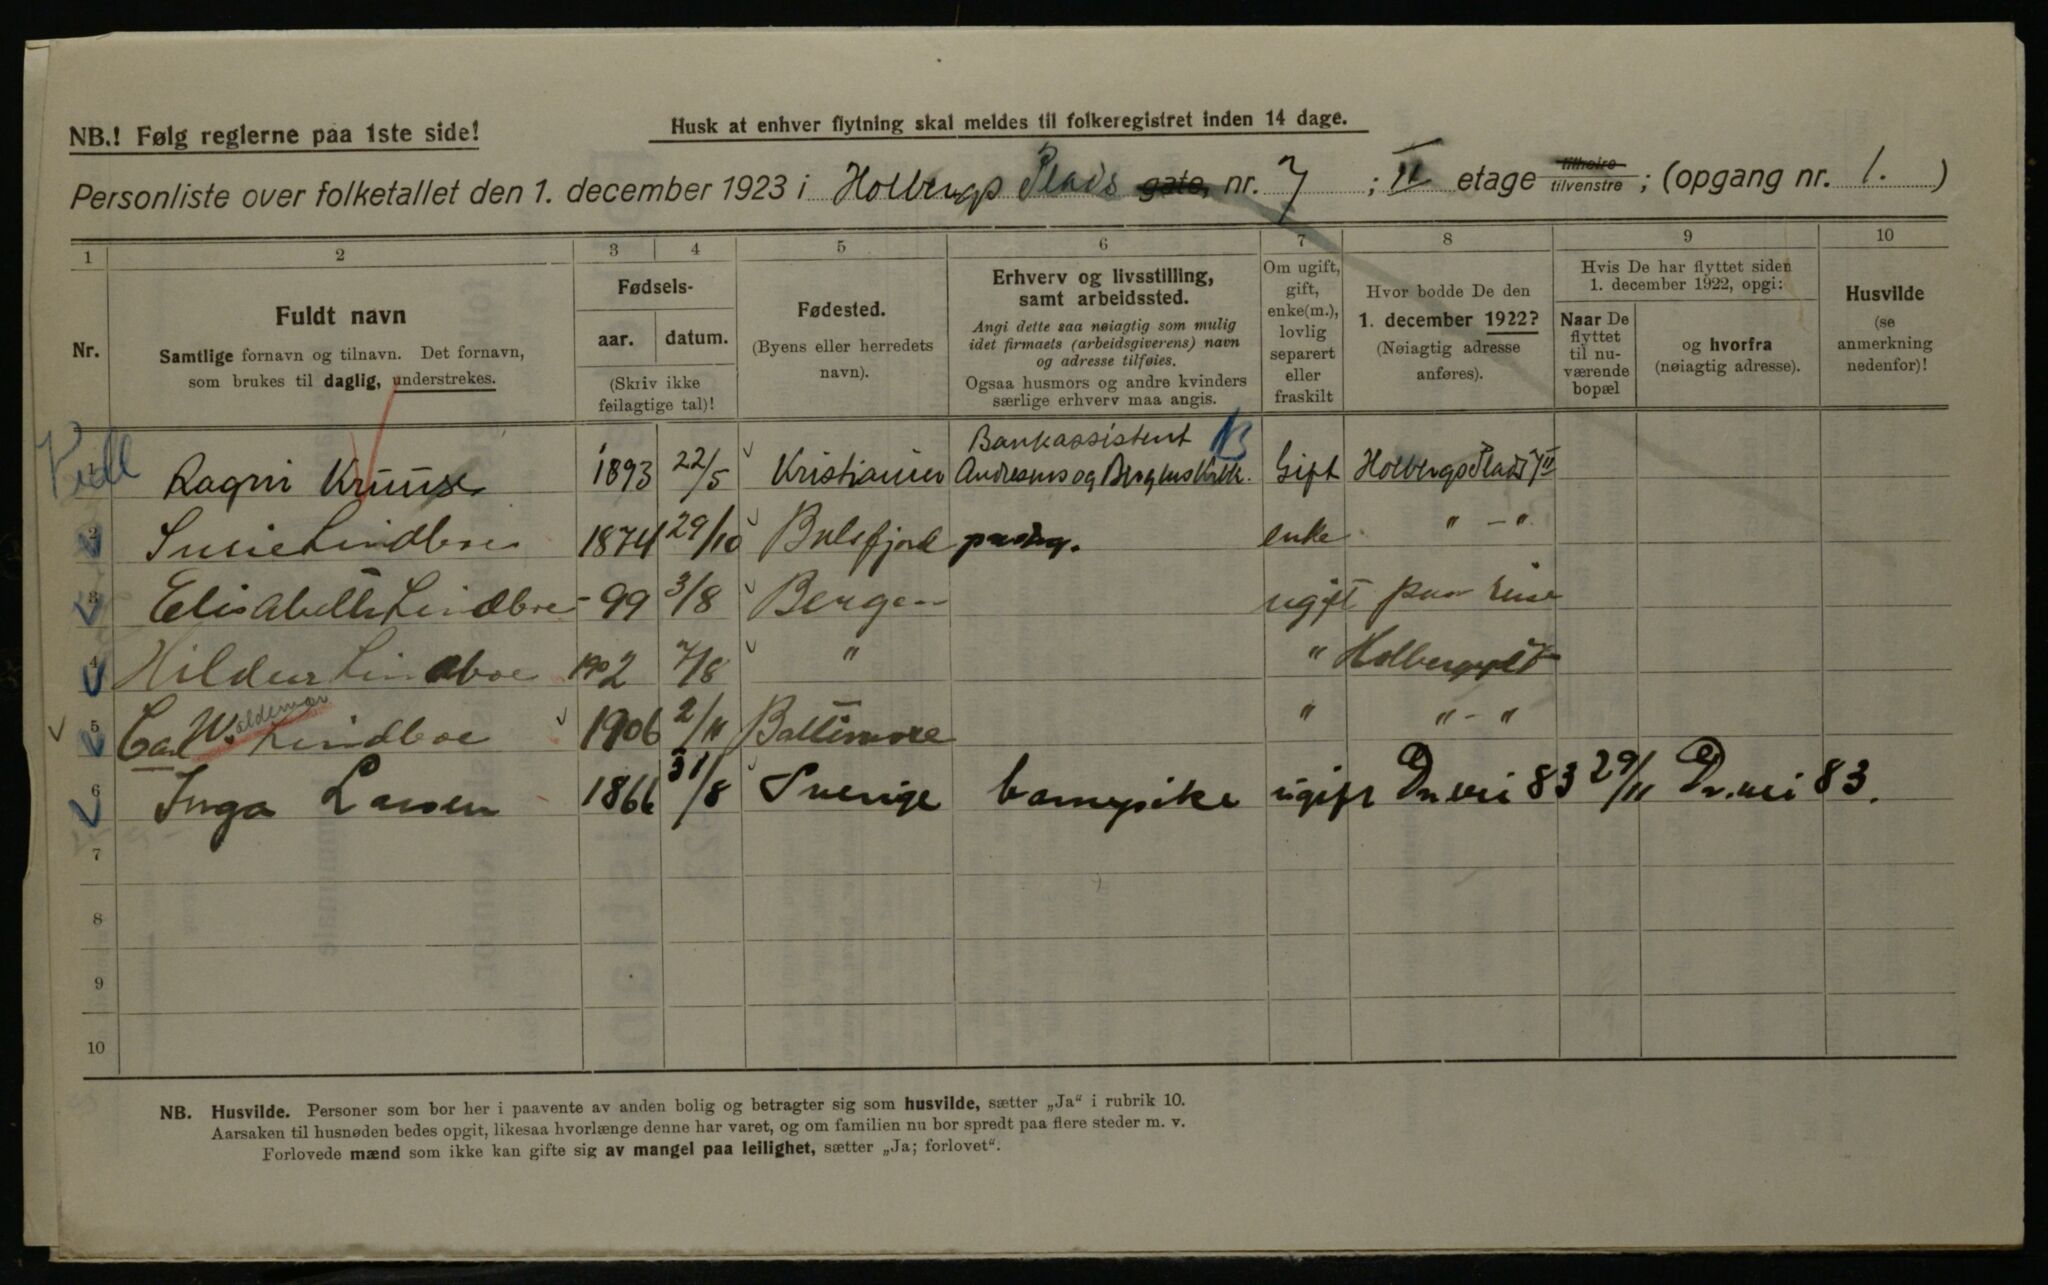 NB.! Følg reglerne paa 1ste side!
Husk at enhver flytning skal meldes til folkeregistret inden 14 dage.
Personliste over folketallet den 1. december 1923 i Holbergs Plads gate, nr. 7 ; II etage tilhøire tilvenstre ; (opgang nr. 1. )
1 2 3 4 5 6 7 8 9 10
Nr.
Fuldt navn
Samtlige fornavn og tilnavn. Det fornavn,
som brukes til daglig, understrekes.
Fødsels-
aar. datum.
(Skriv ikke
feilagtige tal)!
Fødested.
(Byens eller herredets
navn).
Erhverv og livsstilling,
samt arbeidssted.
Angi dette saa nøiagtig som mulig
idet firmaets (arbeidsgiverens) navn
og adresse tilføies.
Ogsaa husmors og andre kvinders
særlige erhverv maa angis.
Om ugift,
gift,
enke(m.),
lovlig
separert
eller
fraskilt
Hvor bodde De den
1. december 1922?
(Nøiagtig adresse
anføres).
Hvis De har flyttet siden
1. december 1922, opgi:
Naar De
flyttet
til nu-
værende
bopæl
og hvorfra
(nøiagtig adresse).
Husvilde
(se
anmerkning
nedenfor)!
Bankassistent B
1 Ragni Kruuse 1893 22/5 Kristiania Andresens og Bergens Kr.bk. Gift Holbergs Plads 7 II
2 Susie Lindboe 1874 29/10 Balsfjord enke " - "
3 Elisabeth Lindboe - 99 3/8 Bergen ugift paa reise
4 Hildur Lindboe 1902 7/8 " " Holbergspl 7
5 Carl W. aldemar Lindboe 1906 2/11 Baltimore " " - "
6 Inga Larsen 1866 31/8 Sverige barnepike ugift Dr.vei 83 29/11 Dr.vei 83.
7
8
9
10
NB. Husvilde. Personer som bor her i paavente av anden bolig og betragter sig som husvilde, sætter „Ja“ i rubrik 10.
Aarsaken til husnøden bedes opgit, likesaa hvorlænge denne har varet, og om familien nu bor spredt paa flere steder m. v.
Forlovede mænd som ikke kan gifte sig av mangel paa leilighet, sætter „Ja; forlovet“.